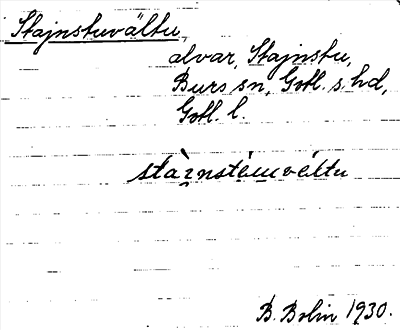 Stajnstuvältu,
alvar, Stajnstu,
Burs sn, Gotl. s. hd,
Gotl. l.
B. Bolin 1930.